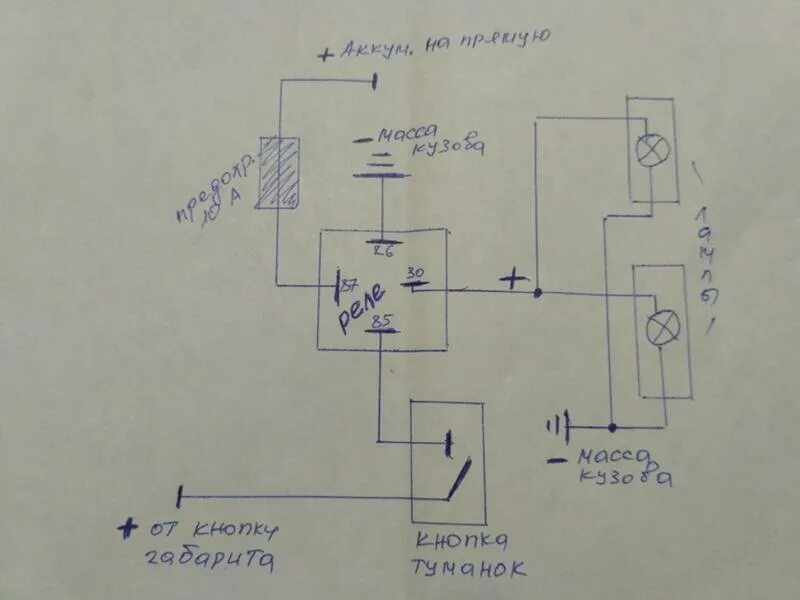 + Аккум. на прямую
- масса
кузова
предохр.
10 А
86
87
30
+
реле
85
/ лампы /
- масса
кузова
+ от кнопку
габарита
кнопка
туманок